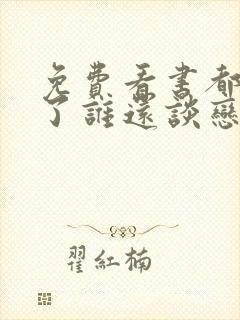 免費看書都
了誰還談戀
翟紅楠